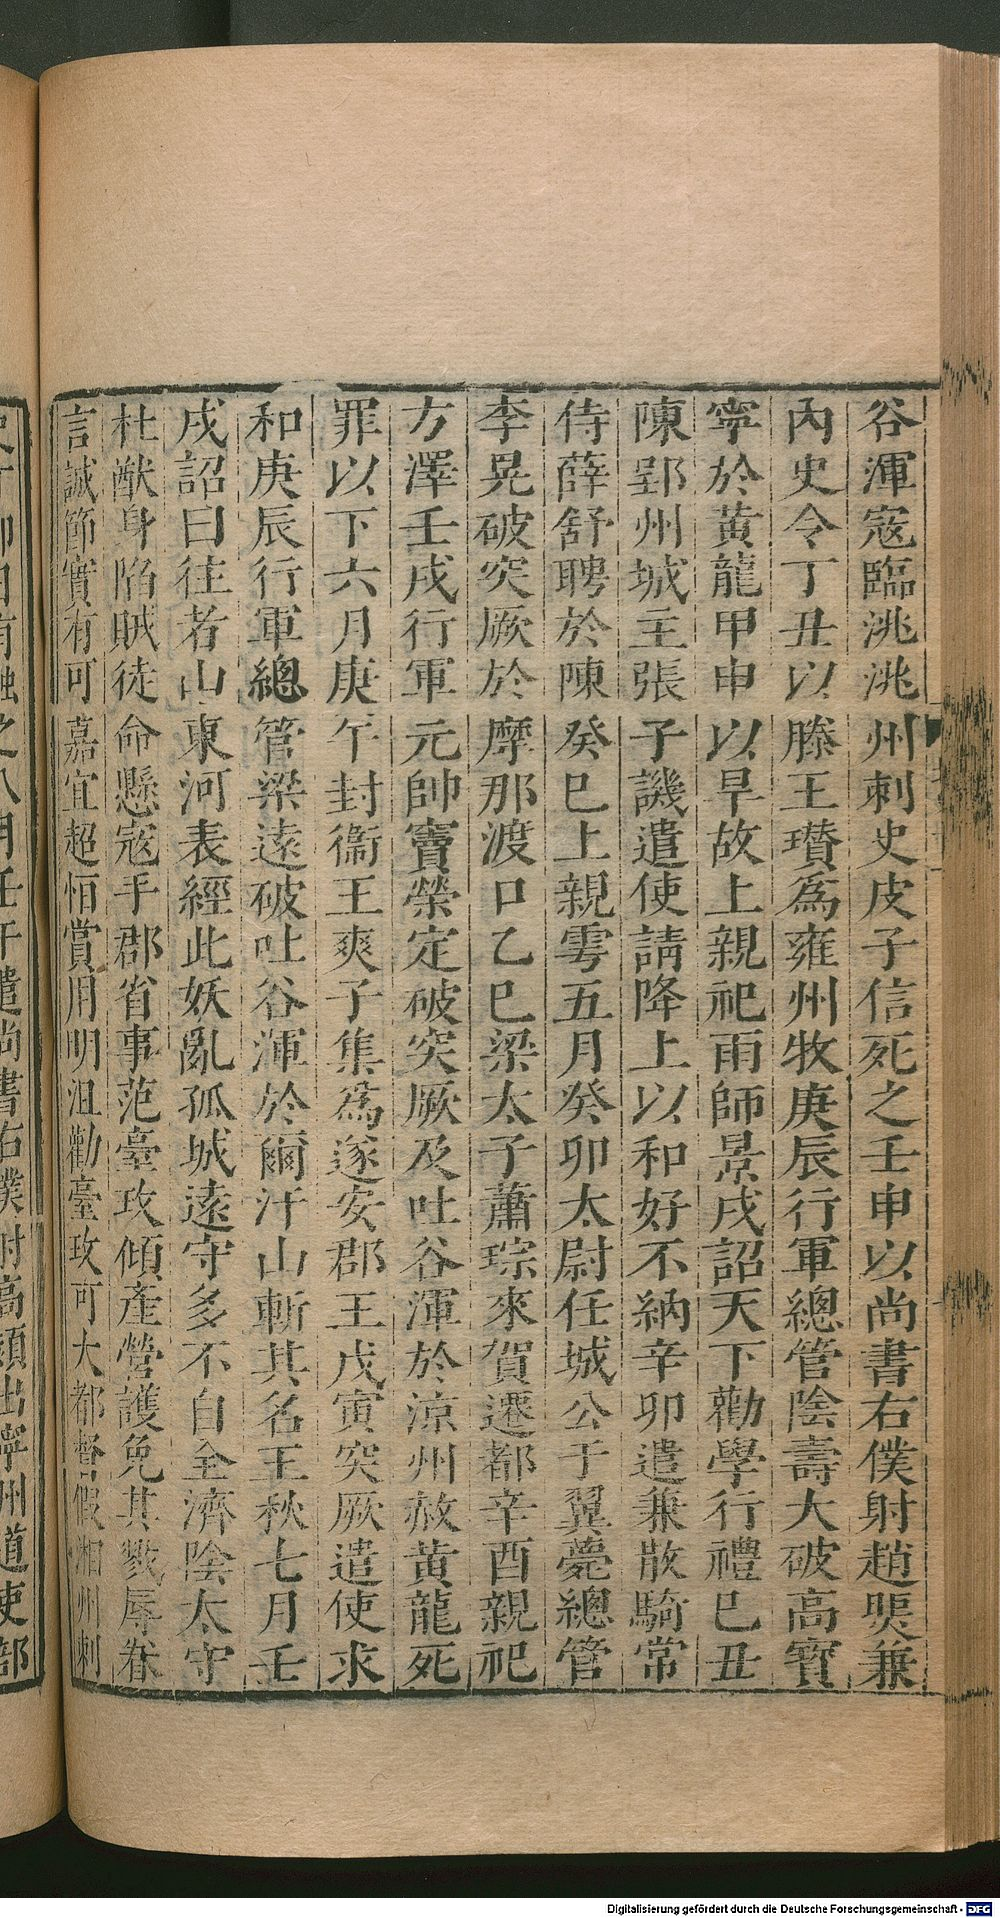 谷渾寇臨洮洮州刺史皮子信死之壬申以尚書右僕射趙煚兼
內史令丁丑以滕王瓚爲雍州牧庚辰行軍總管陰壽大破高寶
寧於黃龍甲申以旱故上親祀雨師景戌詔天下勸學行禮巳丑
陳郢州城主張子譏遣使請降上以和好不納辛卯遣兼散騎常
侍薛舒聘於陳癸巳上親雩五月癸卯太尉任城公于翼薨總管
李晃破突厥於摩那渡口乙巳梁太子蕭琮來賀遷都辛酉親祀
方澤壬戌行軍元帥竇榮定破突厥及吐谷渾於涼州赦黃龍死
罪以下六月庚午封衞王爽子集爲遂安郡王戊寅突厥遣使求
和庚辰行軍總管梁遠破吐谷渾於爾汗山斬其名王秋七月壬
戌詔曰往者山東河表經此妖亂孤城遠守多不自全濟陰太守
杜猷身陷賊徒命懸寇手郡省事范臺玫傾產營護免其戮辱眷
言誠節實有可嘉宜超恒賞用明沮勸臺玫可大都督假湘州刺
史丁卯日有蝕之八月壬午遣尚書右僕射高熲出寧州道吏部
Digitalisierung gefördert durch die Deutsche Forschungsgemeinschaft - DFG